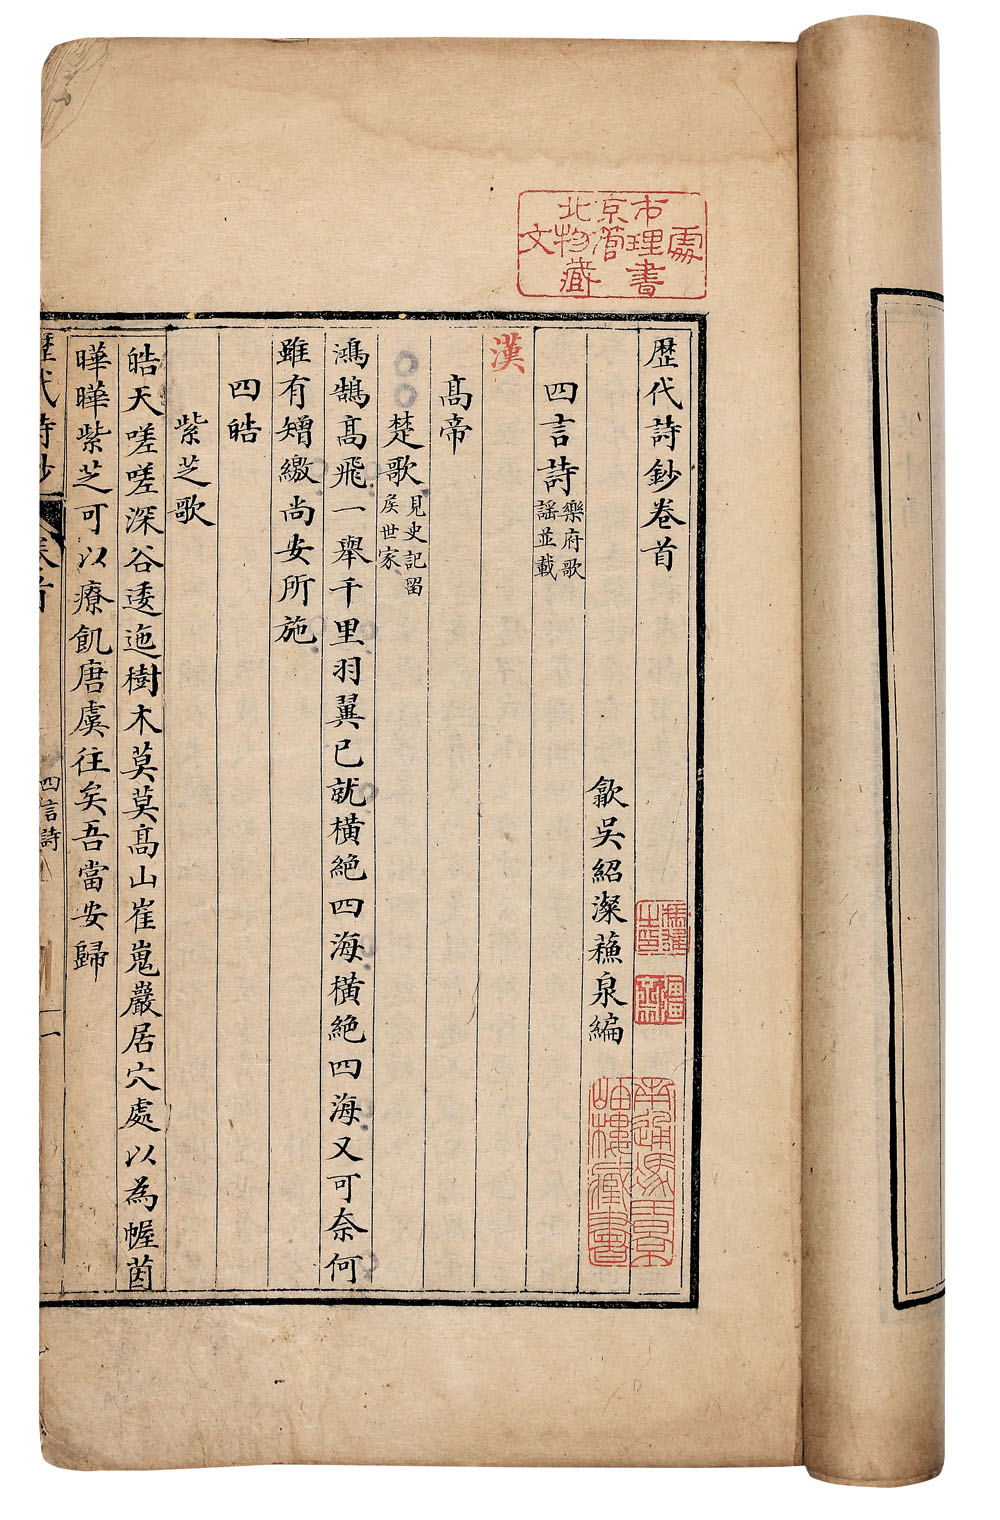 北京市
文物管理處
藏書
歷代詩鈔卷首
歙吳紹澯蘓泉編
四言詩 樂府歌
謡並載
漢
髙帝
楚歌 見史記留
矦世家
鴻鵠髙飛一舉千里羽翼已就橫絶四海橫絶四海又可奈何
雖有矰繳尚安所施
四皓
紫芝歌
皓天嗟嗟深谷逶迤樹木莫莫髙山崔嵬巖居穴處以為幄茵
曄曄紫芝可以療飢唐虞往矣吾當安歸
歷代詩鈔
卷首
四言詩
一
南通馮雄景
岫樓藏書